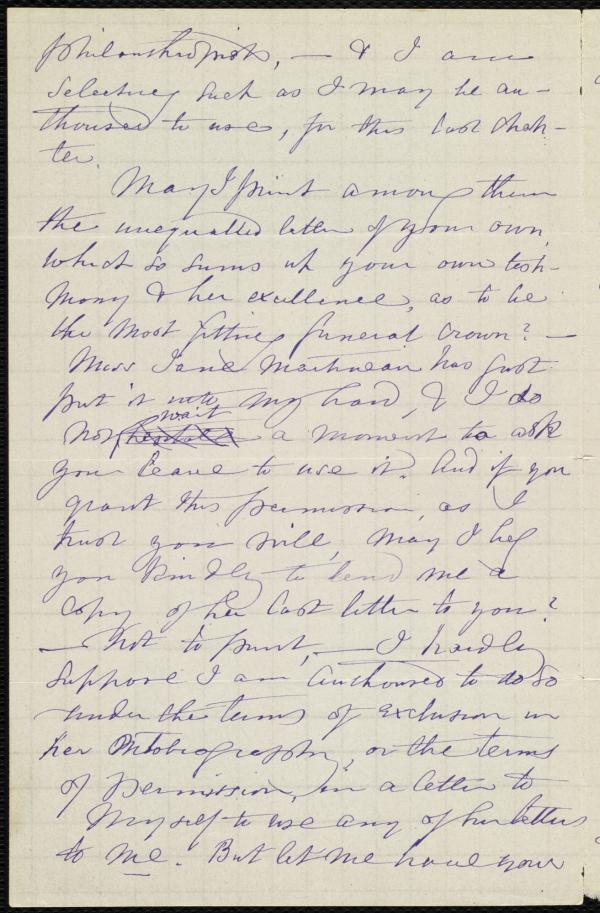 philanthropists, — & I am
selecting such as I may be au-
thorised to use, for this last chap-
ter.
May I print among them
the unequalled letter of your own,
which so sums up your own testi-
mony & her excellence, as to be
the most fitting funeral crown? —
Miss Jane Martineau has just
put it into my hand, & I do
not wait a moment to ask
your leave to use it. And if you
grant this permission, as I
trust you will, may I beg
you kindly to lend me a
copy of her last letter to you?
— Not to print, — I hardly
suppose I am authorised to do so
under the terms of exclusion in
her Autobiography, or the terms
of permission, in a letter to
myself to use any of her letters
to me. But let me have your